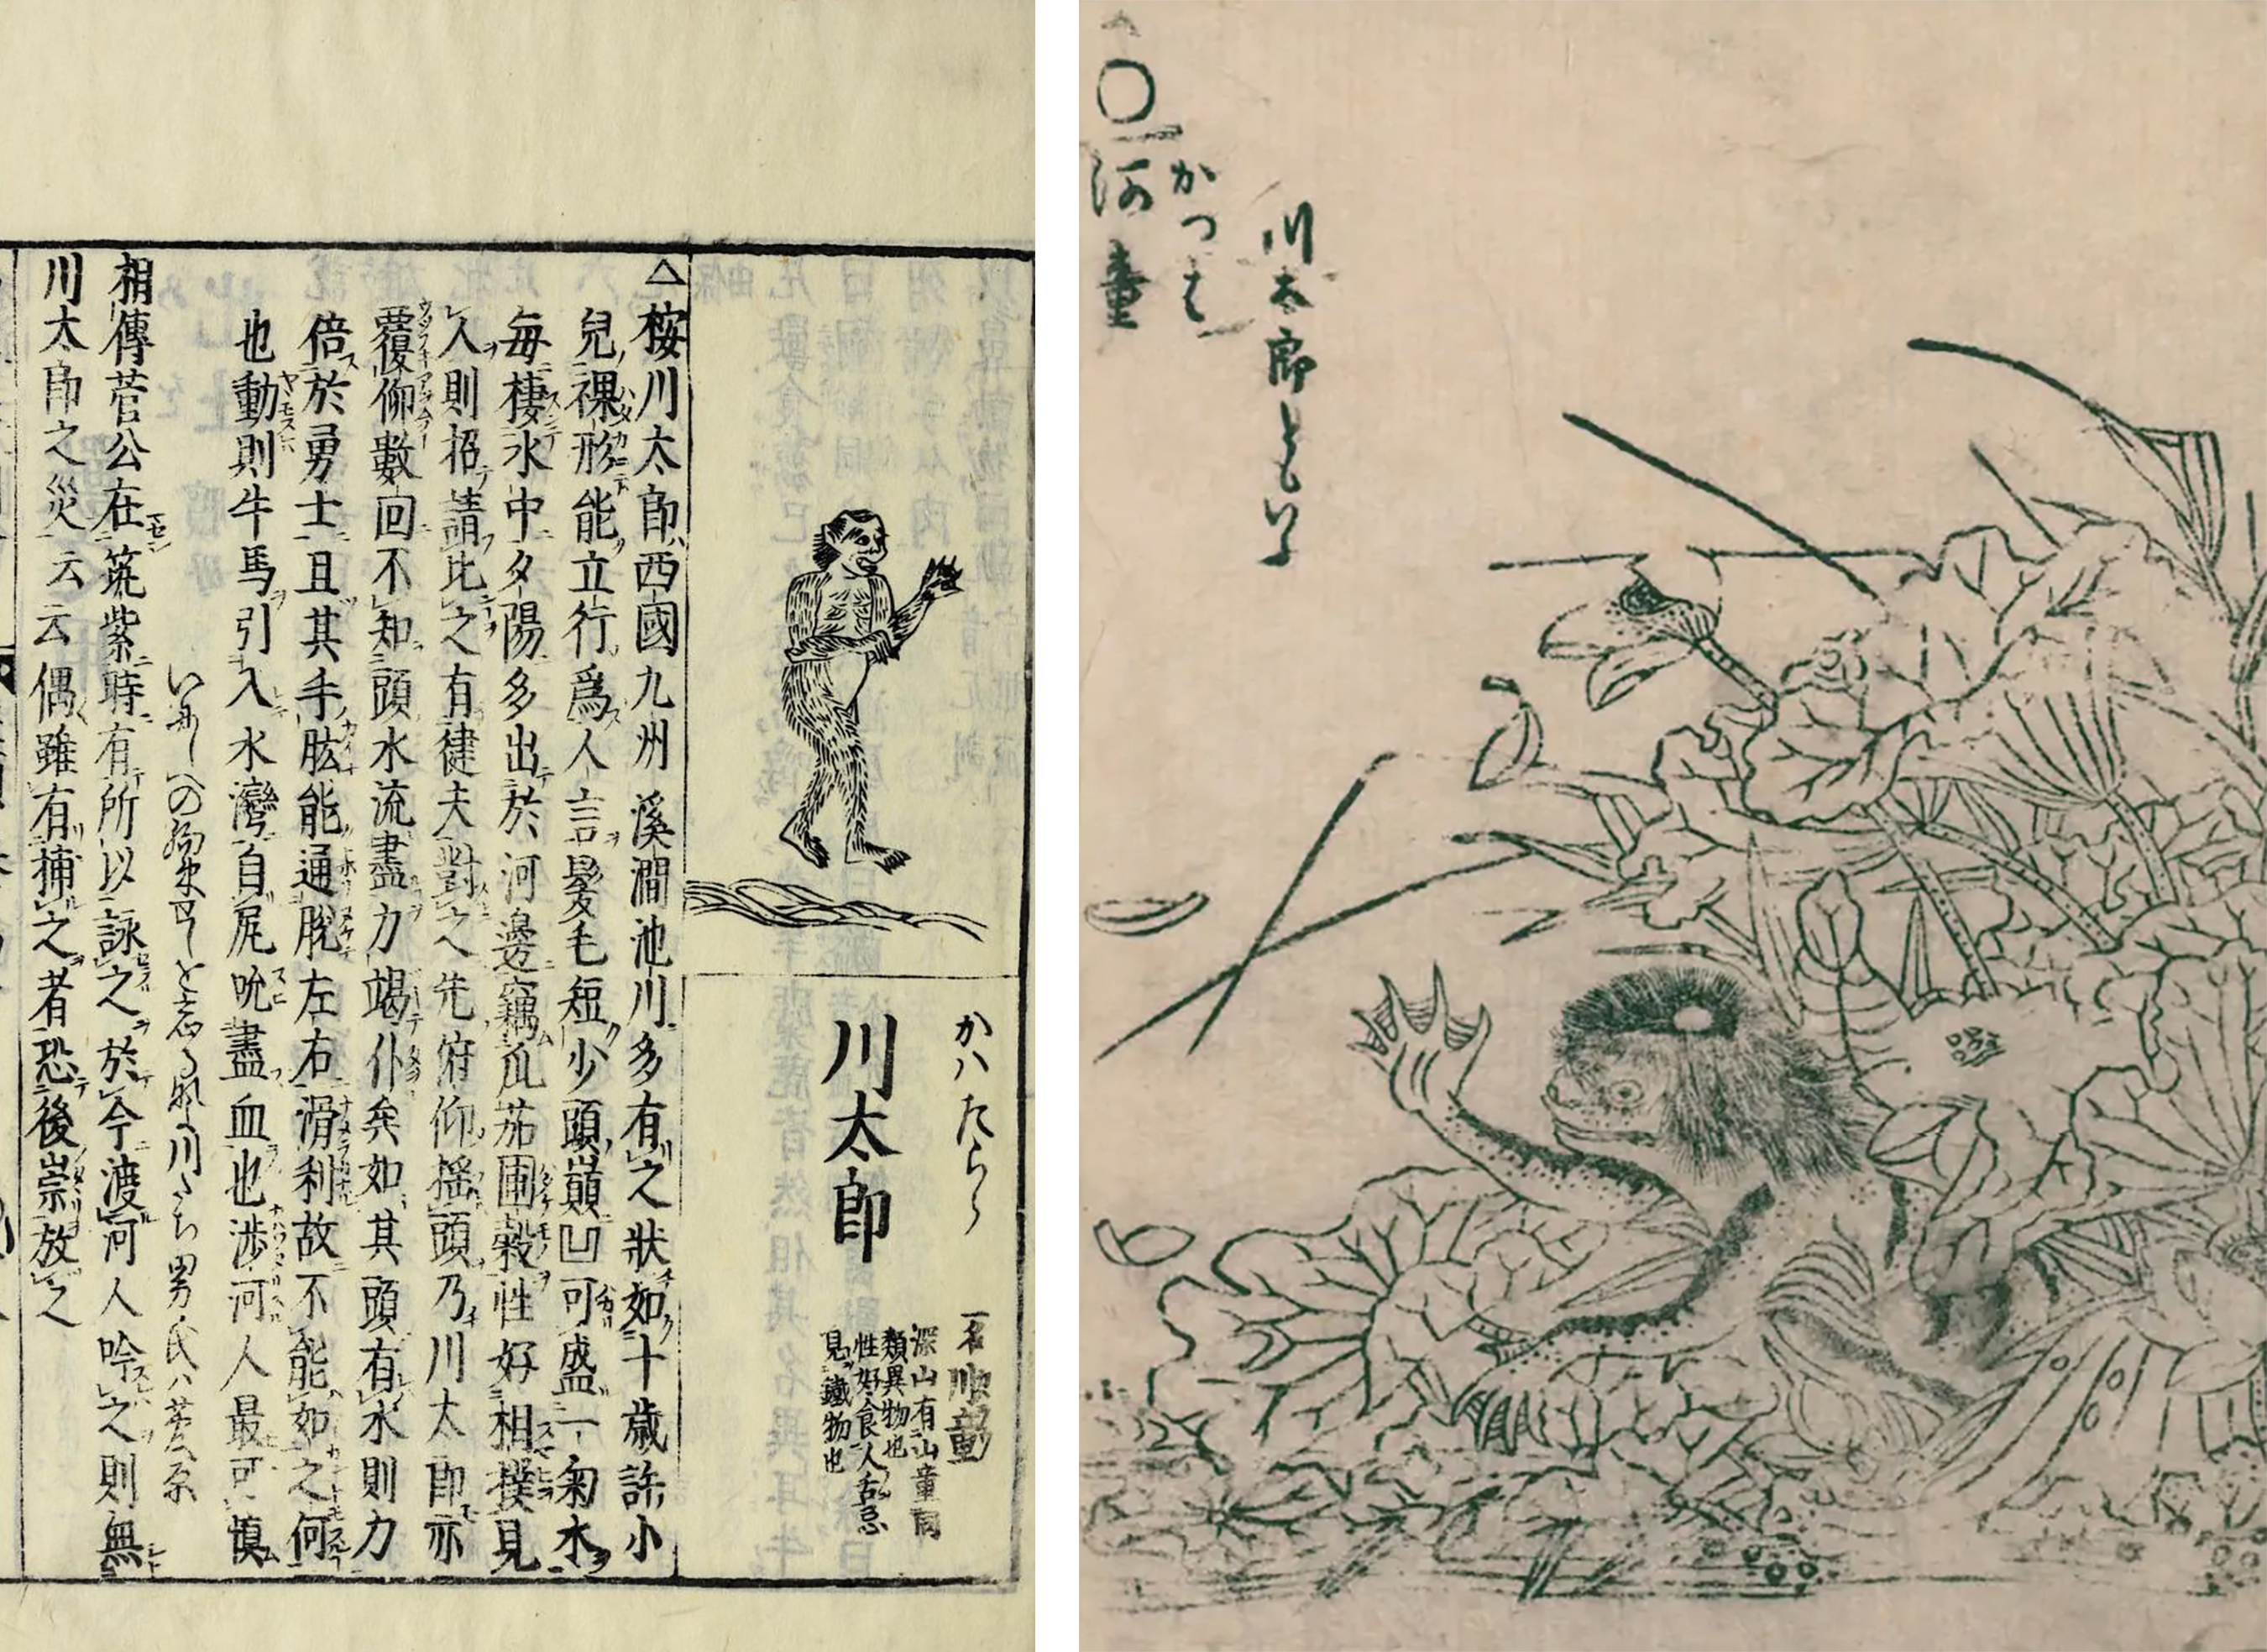 かハたらう
川太郎
一名川童
深山有山童同
類異物也
性好食人舌忌
見鐵物也
△桉川太郎西國九州溪澗池川多有之狀如十歳許小
兒裸形能立行爲人言髮毛短少頭巓凹可盛一匊水
毎棲水中夕陽多出於河邊竊瓜茄圃穀性好相撲見
人則招請比之有徤夫對之先俯仰揺頭乃川太郎亦
覆仰數回不知頭水流盡力竭仆矣如其頭有水則力
倍於勇士且其手肱能通脱左右滑利故不能如之何
也動則牛馬引入水灣自尻吮盡血也渉河人最可愼
いにしへの約束せしを忘るなよ川たち男氏ハ菅原
相傳菅公在筑紫時有所以詠之於今渡河人吟之則無
川太郎之災云云偶雖有捕之者恐後崇放之
川太郎ともいふ
かつは
〇河童